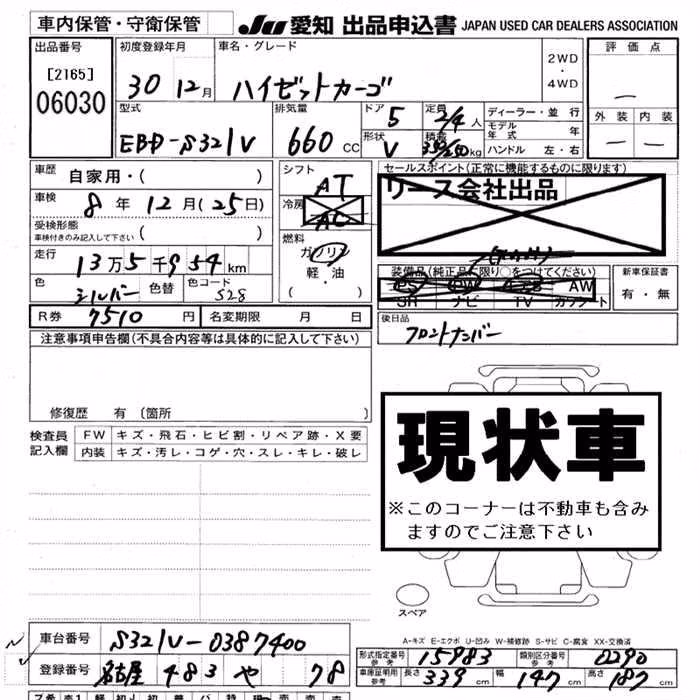 車内保管・守衛保管 JU 愛知 出品申込書 JAPAN USED CAR DEALERS ASSOCIATION
出品番号 初度登録年月 車名・グレード 評価点
[2165] 30 12月 ハイゼットカーゴ 2WD・4WD —
06030
型式 排気量 ドア 5 定員 2/4人 ディーラー・並行 外装 内装
EBD-S321V 660cc 形状 V 積載 350/250kg モデル年式 年 — —
ハンドル 左・右
車歴 自家用・( ) シフト AT セールスポイント(正常に機能するものに限ります)
車検 8年12月(25日) 冷房 AC リース会社出品
受検形態 車検付きのみ記入して下さい ( ) 燃料 ガソリン
走行 13万5千954km 軽・油 装備品(純正品に限り○をつけてください) 新車保証書
色 シルバー 色替 色コード S28 ・( ) PS PW エアB AW 有・無
SR ナビ TV カワシート
R券 7510円 名変期限 月 日 後日品
フロントナンバー
注意事項申告欄(不具合内容等は具体的に記入して下さい)
修復歴 有 〔箇所 〕
現状車
※このコーナーは不動車も含み
ますのでご注意下さい
検査員 FW キズ・飛石・ヒビ割・リペア跡・X要
記入欄 内装 キズ・汚レ・コゲ・穴・スレ・キレ・破レ
スペア
A-キズ E-エクボ U-凹み W-補修跡 S-サビ C-腐食 XX-交換済
車台番号 S321V-0387400
形式指定番号 参考 15983 類別区分番号 参考 0290
登録番号 名古屋 483 や 78
車庫証明用 参考 長さ 339cm 幅 147cm 高さ 187cm